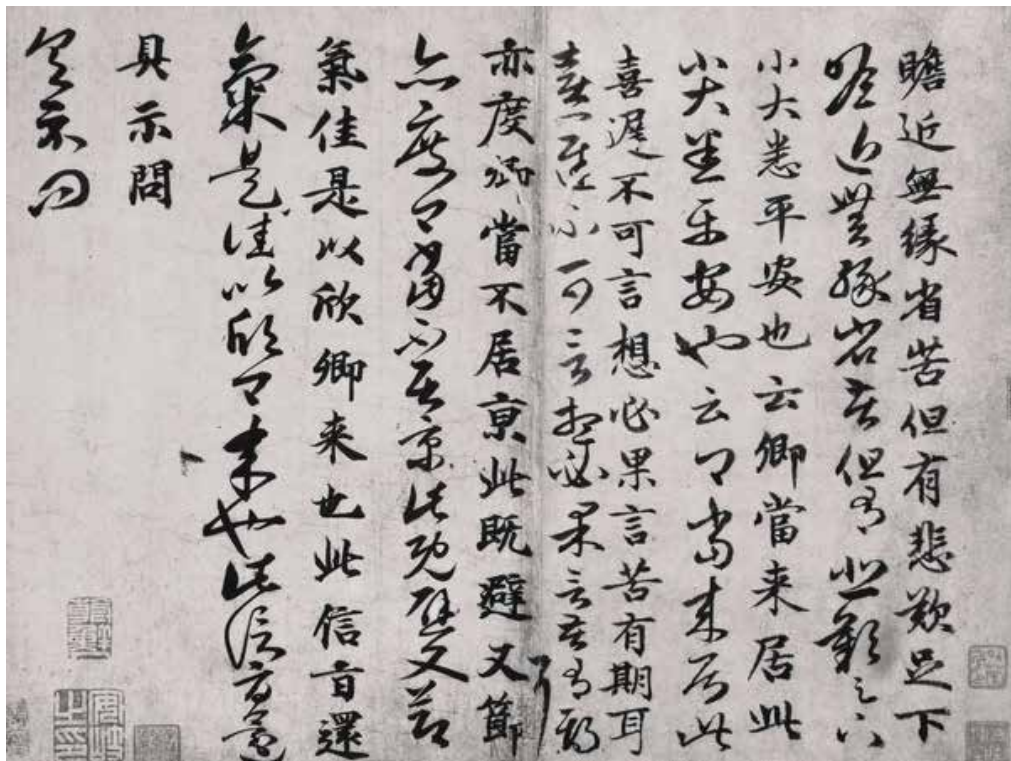 瞻近無緣省苦但有悲歎足下
瞻近無緣省苦但有悲歎足下
小大悉平安也云卿當来居此
小大悉平安也云卿當来居此
喜遲不可言想必果言苦有期耳
喜遲不可言想必果言苦有期耳
亦度卿當不居亰此既避又節
亦度卿當不居京此既避又節
氣佳是以欣卿来也此信旨還
氣是佳以欣卿来也此信旨還
具示問
具示問